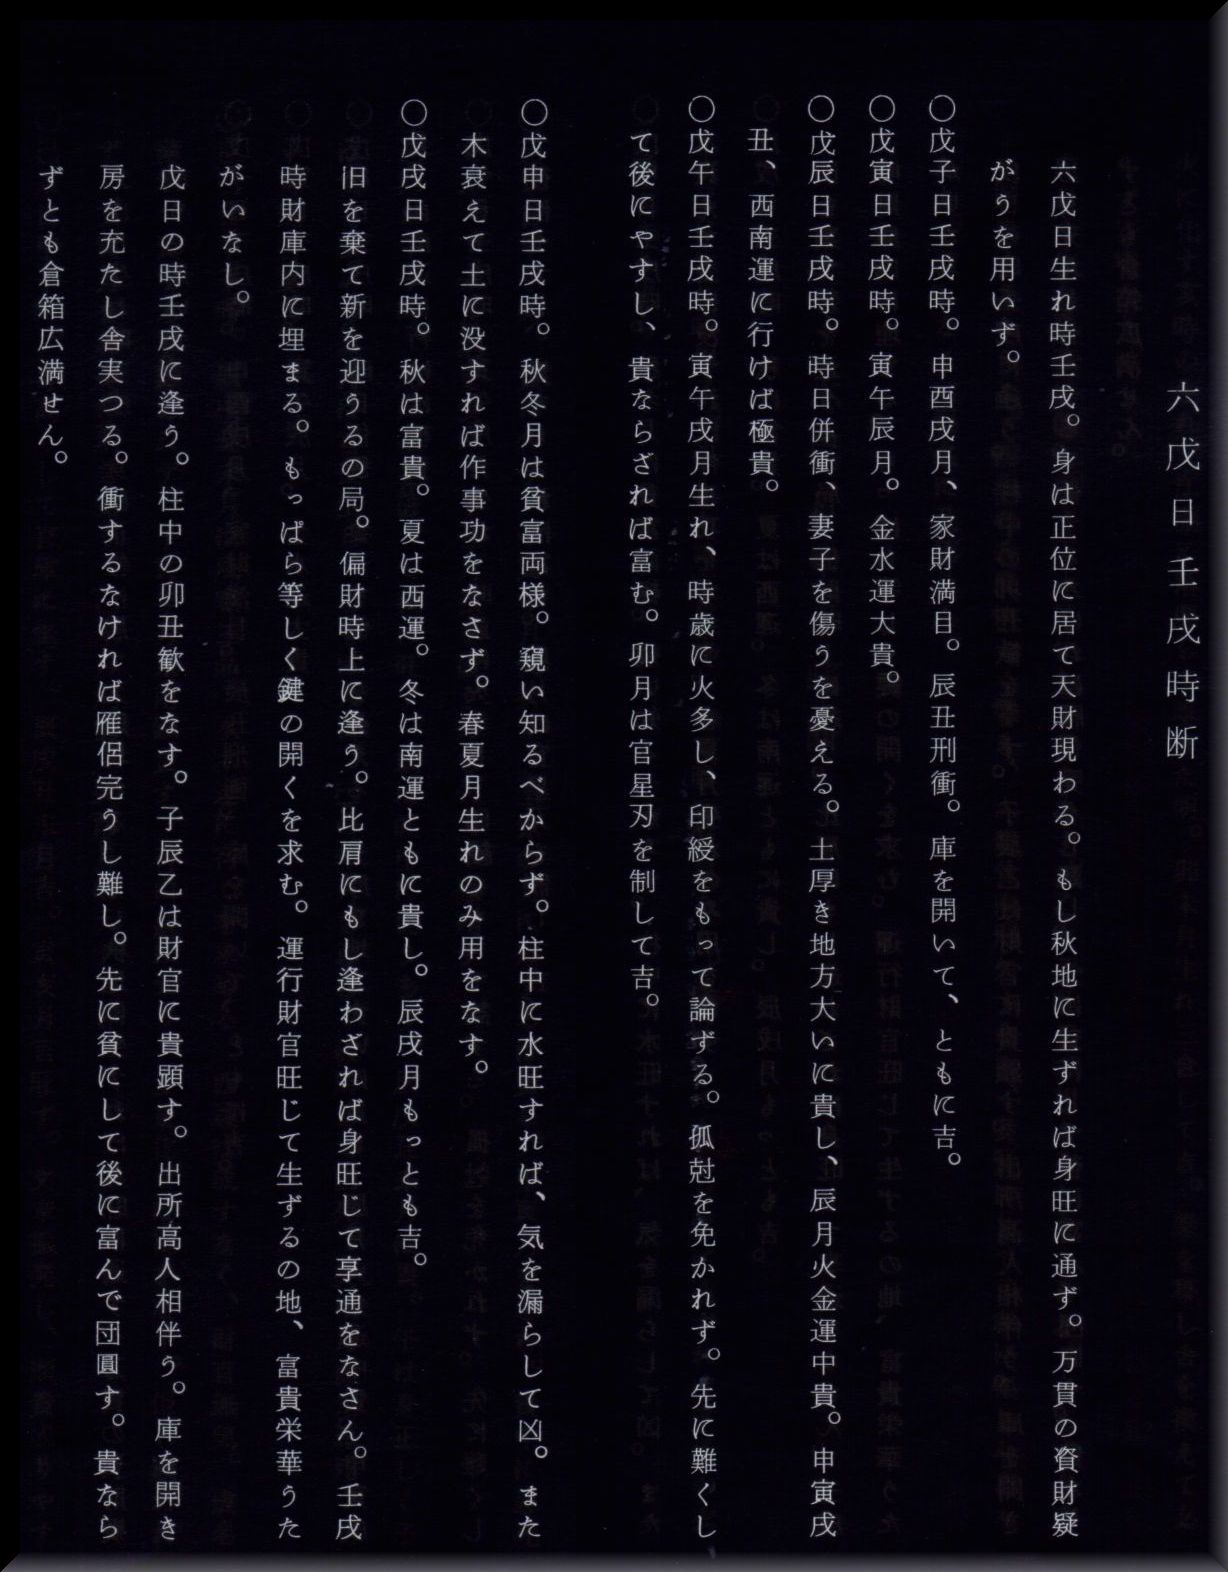 六戊日壬戌時断
六戊日生れ時壬戌。身は正位に居て天財現わる。もし秋地に生ずれば身旺に通ず。万貫の資財疑
がうを用いず。
〇戊子日壬戌時。申酉戌月、家財満目。辰丑刑衝。庫を開いて、ともに吉。
〇戊寅日壬戌時。寅午辰月。金水運大貴。
〇戊辰日壬戌時。時日併衝、妻子を傷うを憂える。土厚き地方大いに貴し、辰月火金運中貴。申寅戌
丑、西南運に行けば極貴。
〇戊午日壬戌時。寅午戌月生れ、時歳に火多し、印綬をもって論ずる。孤尅を免かれず。先に難くし
て後にやすし、貴ならざれば富む。卯月は官星刃を制して吉。
〇戊申日壬戌時。秋冬月は貧富両様。窺い知るべからず。柱中に水旺すれば、気を漏らして凶。また
木衰えて土に没すれば作事功をなさず。春夏月生れのみ用をなす。
〇戊戌日壬戌時。秋は富貴。夏は西運。冬は南運ともに貴し。辰戌月もっとも吉。
旧を棄て新を迎うるの局。偏財時上に逢う。比肩にもし逢わざれば身旺じて享通をなさん。壬戌
時財庫内に埋まる。もっぱら等しく鍵の開くを求む。運行財官旺じて生ずるの地、富貴栄華うた
がいなし。
戊日の時壬戌に逢う。柱中の卯丑歓をなす。子辰乙は財官に貴顕す。出所高人相伴う。庫を開き
房を充たし舎実つる。衝するなければ雁侶完うし難し。先に貧にして後に富んで団圓す。貴なら
ずとも倉箱広満せん。